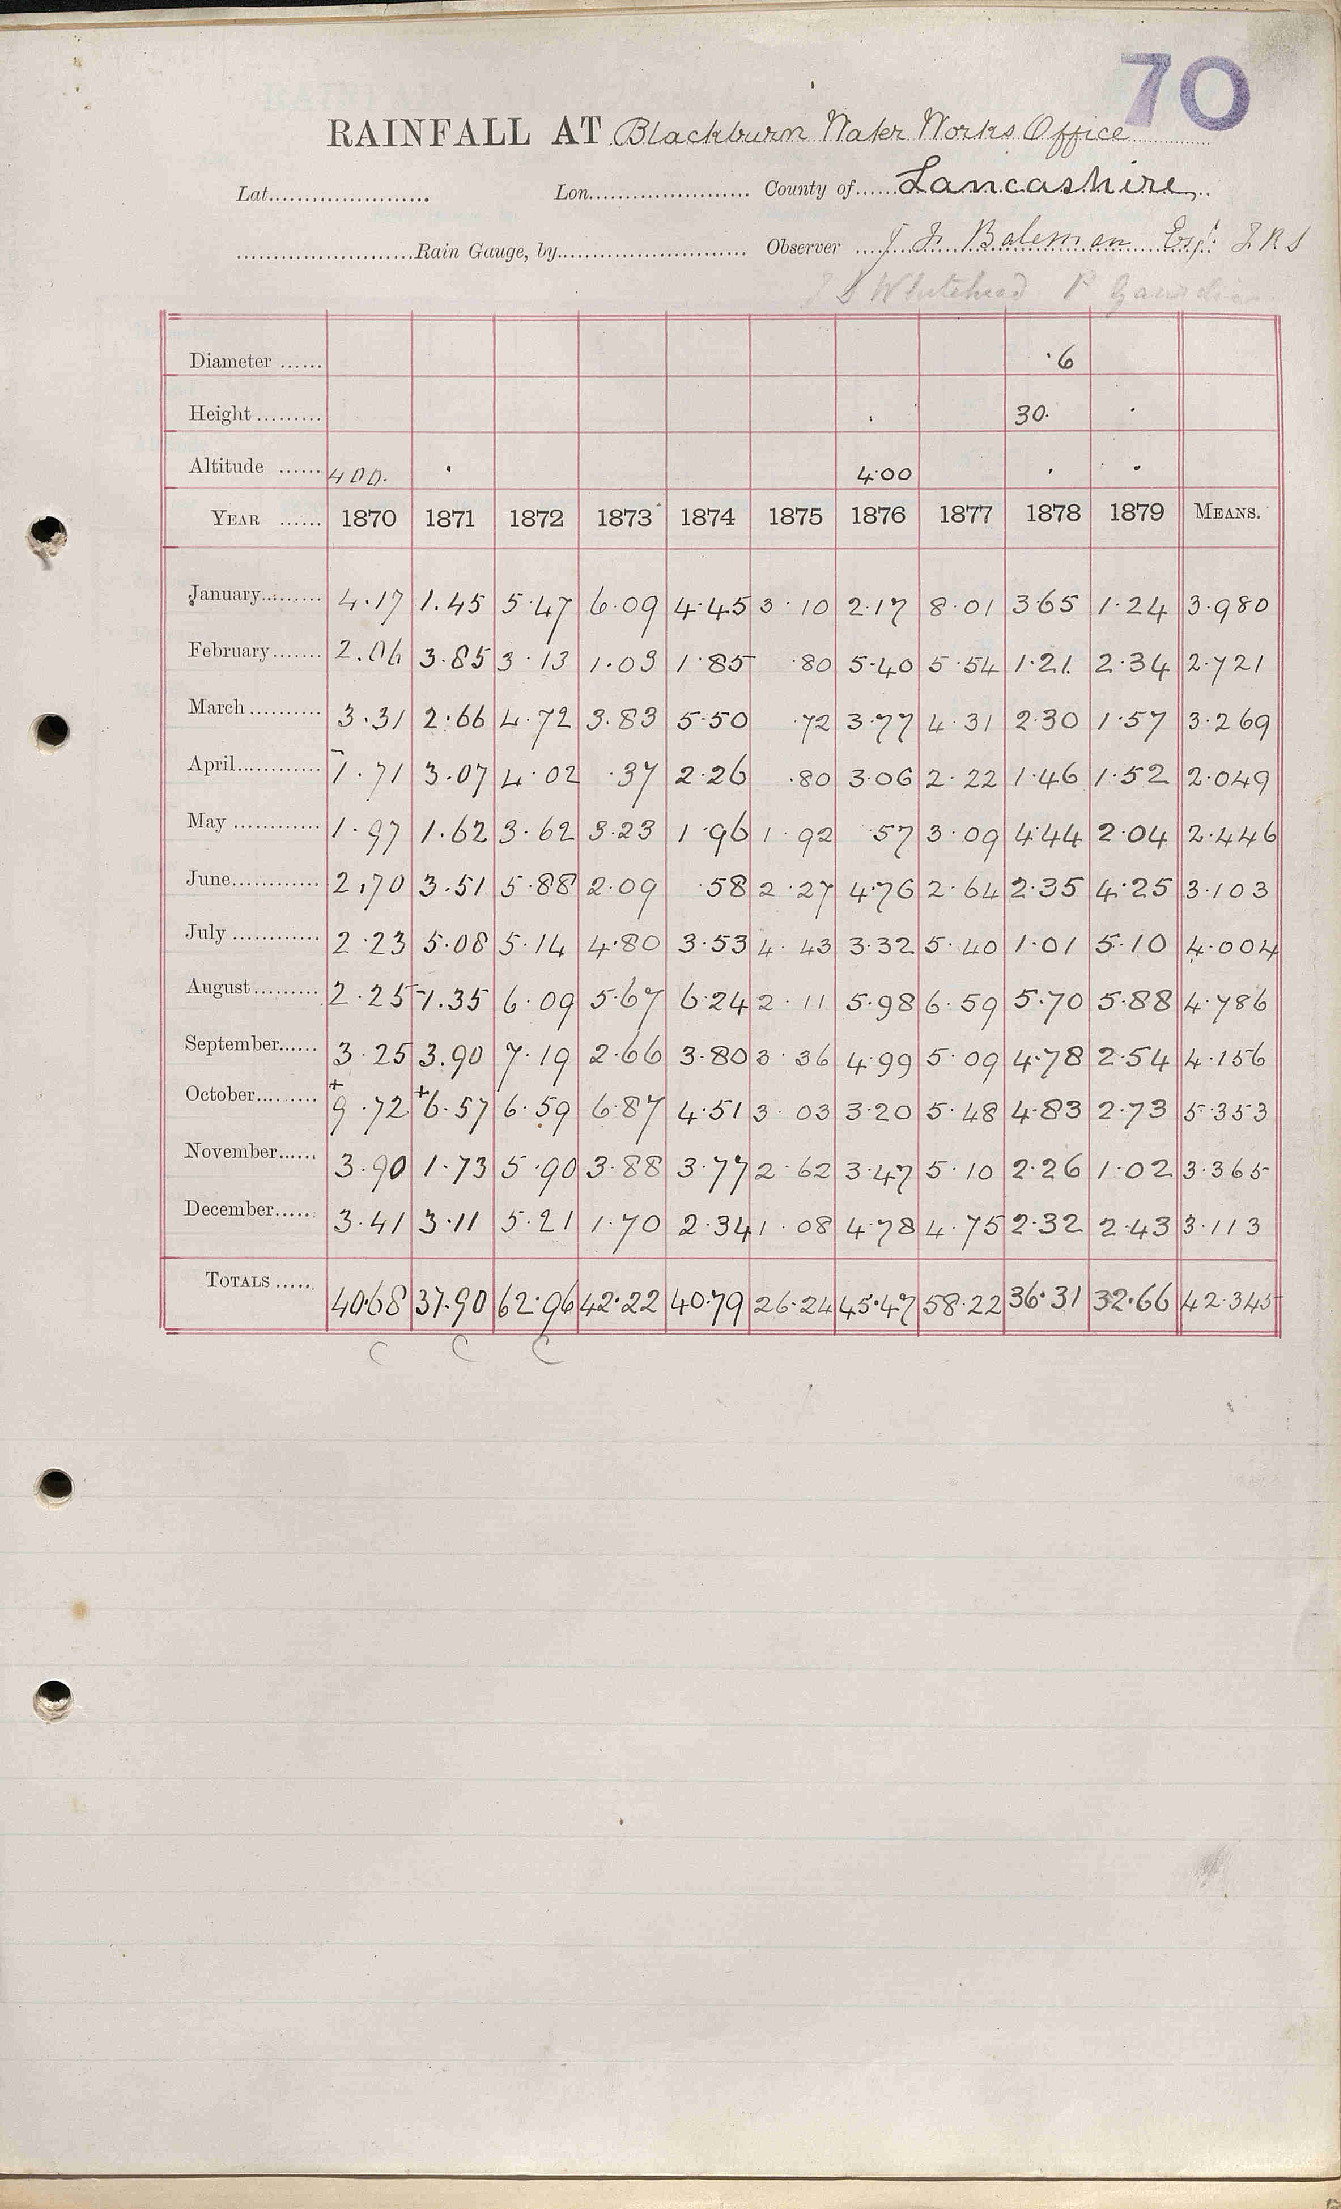 70
RAINFALL AT Blackburn Water Works Office
Lat. Lon. County of Lancashire
Rain Gauge, by Observer J. F. Bateman Esqr. F R S
Whitehead P
Diameter ·6
Height 30·
Altitude 400· 400
YEAR 1870 1871 1872 1873 1874 1875 1876 1877 1878 1879 MEANS.
January 4·17 1.45 5·47 6·09 4·45 3·10 2·17 8·01 3·65 1·24 3·980
February 2.06 3.85 3·13 1.03 1·85 ·80 5·40 5·54 1·21 2·34 2·721
March 3.31 2·66 4·72 3.83 5·50 ·72 3·77 4·31 2·30 1·57 3·269
April 1·71 3.07 4·02 ·37 2·26 ·80 3·06 2·22 1·46 1·52 2·049
May 1·97 1.62 3·62 3·23 1·96 1·92 ·57 3·09 4·44 2·04 2·446
June 2.70 3.51 5·88 2·09 ·58 2·27 4·76 2·64 2·35 4·25 3·103
July 2·23 5.08 5·14 4·80 3·53 4·43 3·32 5·40 1·01 5·10 4·004
August 2·25 1.35 6·09 5·67 6·24 2·11 5·98 6·59 5·70 5·88 4·786
September 3·25 3.90 7·19 2·66 3·80 3·36 4·99 5·09 4·78 2·54 4·156
October + 9·72 + 6·57 6·59 6·87 4·51 3·03 3·20 5·48 4·83 2·73 5·353
November 3·90 1·73 5·90 3·88 3·77 2·62 3·47 5·10 2·26 1·02 3·365
December 3·41 3·11 5·21 1·70 2·34 1·08 4·78 4·75 2·32 2·43 3·113
TOTALS 40·68 37·90 62·96 42·22 40·79 26·24 45·47 58·22 36·31 32·66 42·345
C C C